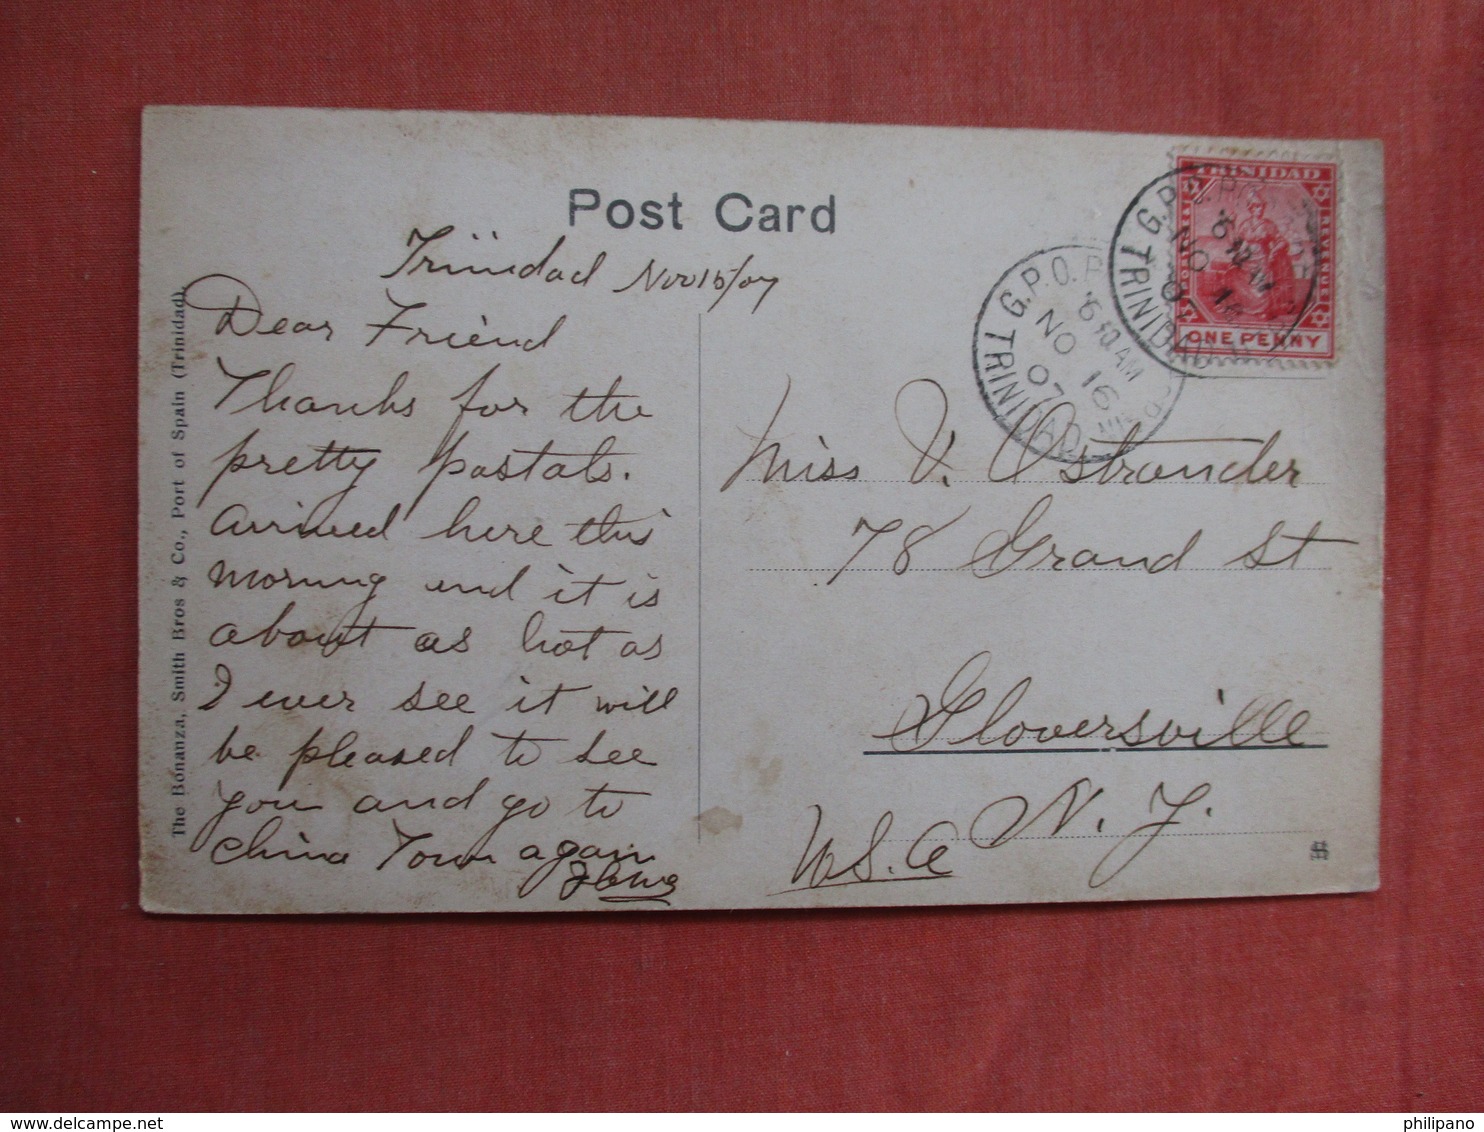 Post Card
Trinidad Nov 15/07
Dear Friend
Thanks for the
pretty postals.
Arrived here this
morning and it is
about as hot as
I ever see it will
be pleased to see
you and go to
China Town again
The Bonanza, Smith Bros & Co., Port of Spain (Trinidad).
TRINIDAD
ONE PENNY
G.P.O.
6 AM
NO 16
07
TRINIDAD
G.P.O.
NO 16
TRINIDAD
Miss V. Ostrander
78 Grand St
Gloversville
N. Y.
U.S.A
philipano